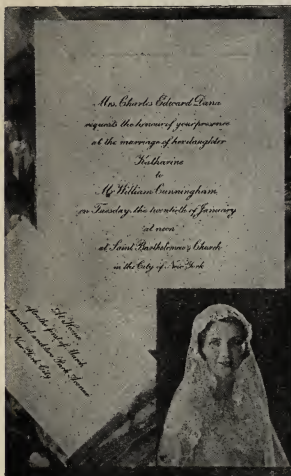 Mrs. Charles Edward Dana
requests the honour of your presence
at the marriage of her daughter
Katharine
to
Mr William Cunningham
on Tuesday, the twentieth of January
at noon
at Saint Bartholomew's Church
in the City of New York
At Home
after the first of March
hundred and two Park Avenue
New York City